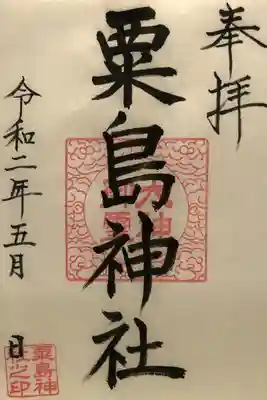 奉拝
粟島神社
令和二年五月 日
粟島神
社之印